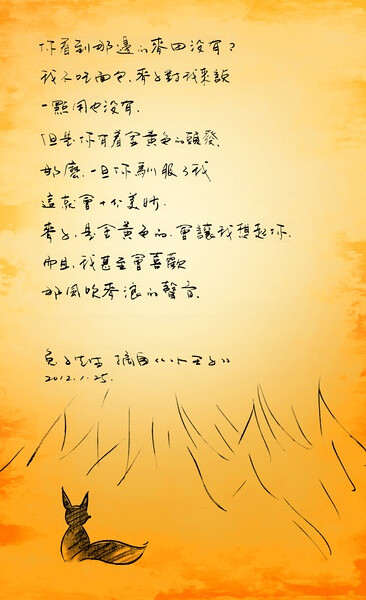 你看到那邊的麥田沒有？
我不吃面包，麥子對我來說
一點用也沒有，
但是你有着金黃色的頭發，
那麼，一旦你馴服了我
這就會十分美妙，
麥子，是金黃色的，會讓我想起你，
而且，我甚至會喜歡
那風吹麥浪的聲音。
兔子先生 摘自《小王子》
2012.1.25.